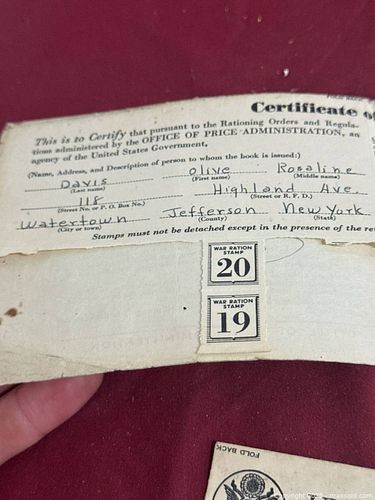 Certificate o
This is to Certify that pursuant to the Rationing Orders and Regula-
tions administered by the OFFICE OF PRICE ADMINISTRATION, an
agency of the United States Government,
(Name, Address, and Description of person to whom the book is issued:)
Davis Olive Rosaline
(Last name) (First name) (Middle name)
118 Highland Ave.
(Street No. or P. O. Box No.) (Street or R. F. D.)
Watertown Jefferson New York
(City or town) (County) (State)
Stamps must not be detached except in the presence of the re
WAR RATION
STAMP
20
WAR RATION
STAMP
19
FOLD BACK